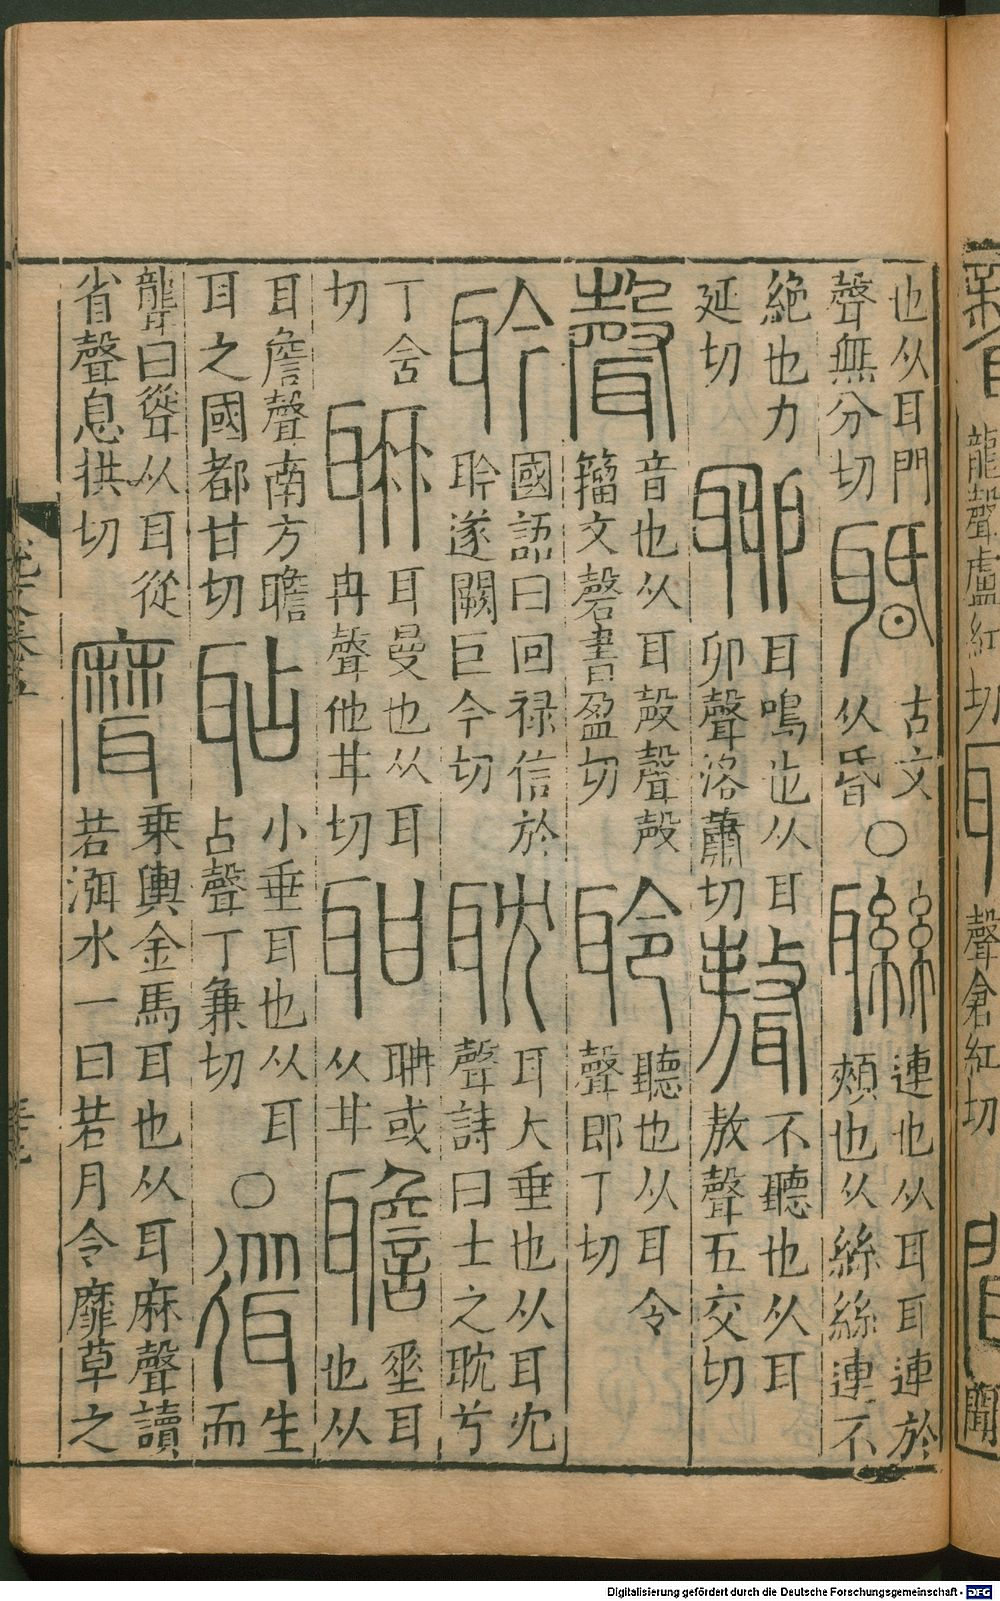 也从耳門
聲無分切
𦕩
古文
从昏
○
聯
連也从耳耳連於
頰也从絲絲連不
絶也力
延切
聊
耳鳴也从耳
卯聲洛蕭切
聱
不聽也从耳
敖聲五交切
聲
音也从耳殸聲殸
籒文磬書盈切
聆
聽也从耳令
聲郎丁切
聆
國語曰回禄信於
聆遂闕巨今切
耽
耳大垂也从耳冘
聲詩曰士之耽兮
丁含
切
耳曼也从耳
冉聲他甘切
耼或
从甘
聸
垂耳
也从
耳詹聲南方瞻
耳之國都甘切
耴
小垂耳也从耳
占聲丁兼切
○
生而
聾曰聳从耳從
省聲息拱切
乘輿金馬耳也从耳麻聲讀
若渳水一曰若月令靡草之
龍聲盧紅切
聲倉紅切
聞
Digitalisierung gefördert durch die Deutsche Forschungsgemeinschaft - DFG